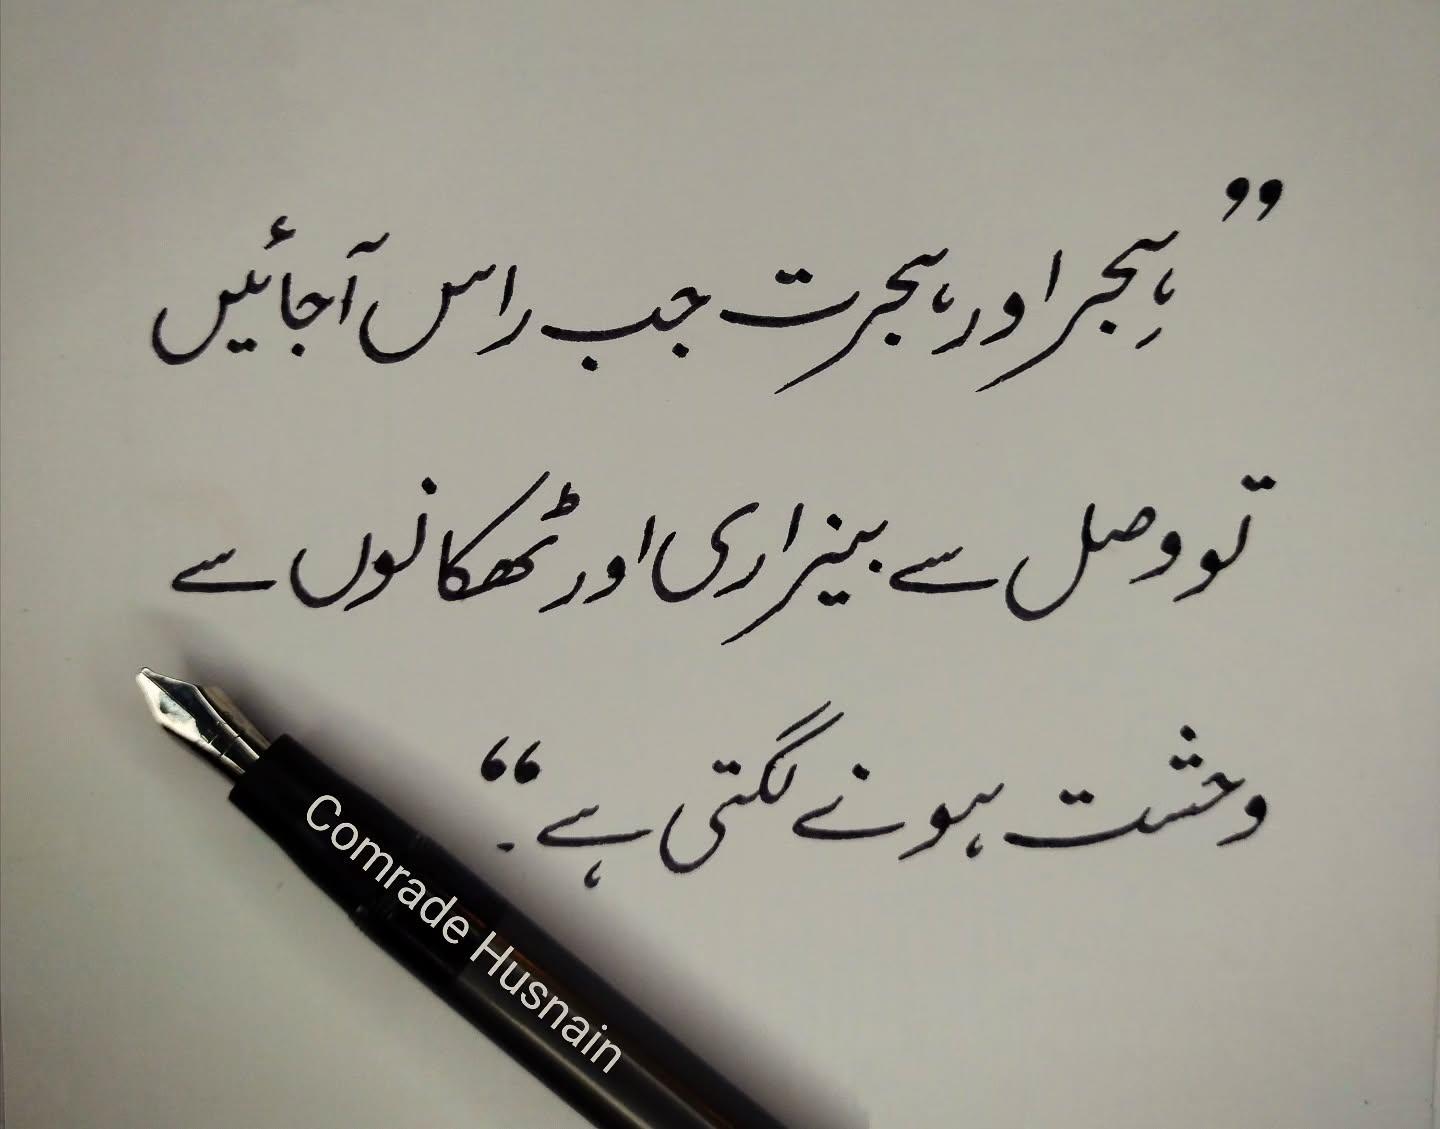 ”ہِجر اور ہجرت جب راس آجائیں
تو وصل سے بیزاری اور ٹھکانوں سے
وحشت ہونے لگتی ہے۔“
Comrade Husnain